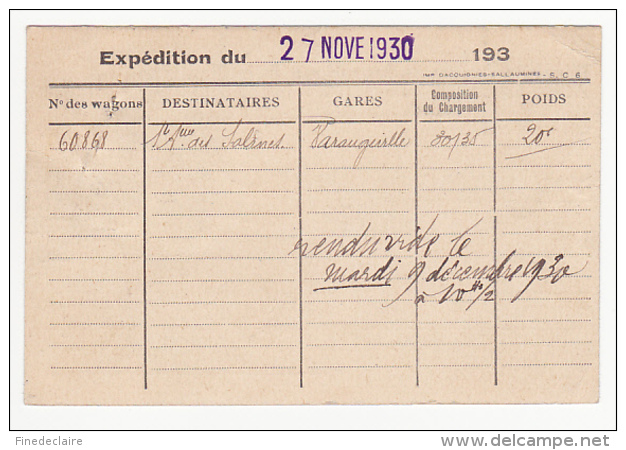 Expédition du 27 NOVE1930 193
IMP. D'ACQUIGNIES-SALLAUMINES - S. C. 6.
Nos des wagons DESTINATAIRES GARES Composition du Chargement POIDS
60868 des Salines 20/35 20
rendu vide le
mardi 9 décembre 1930
à 10 h 1/2
Finedeclaire
delcampe.net